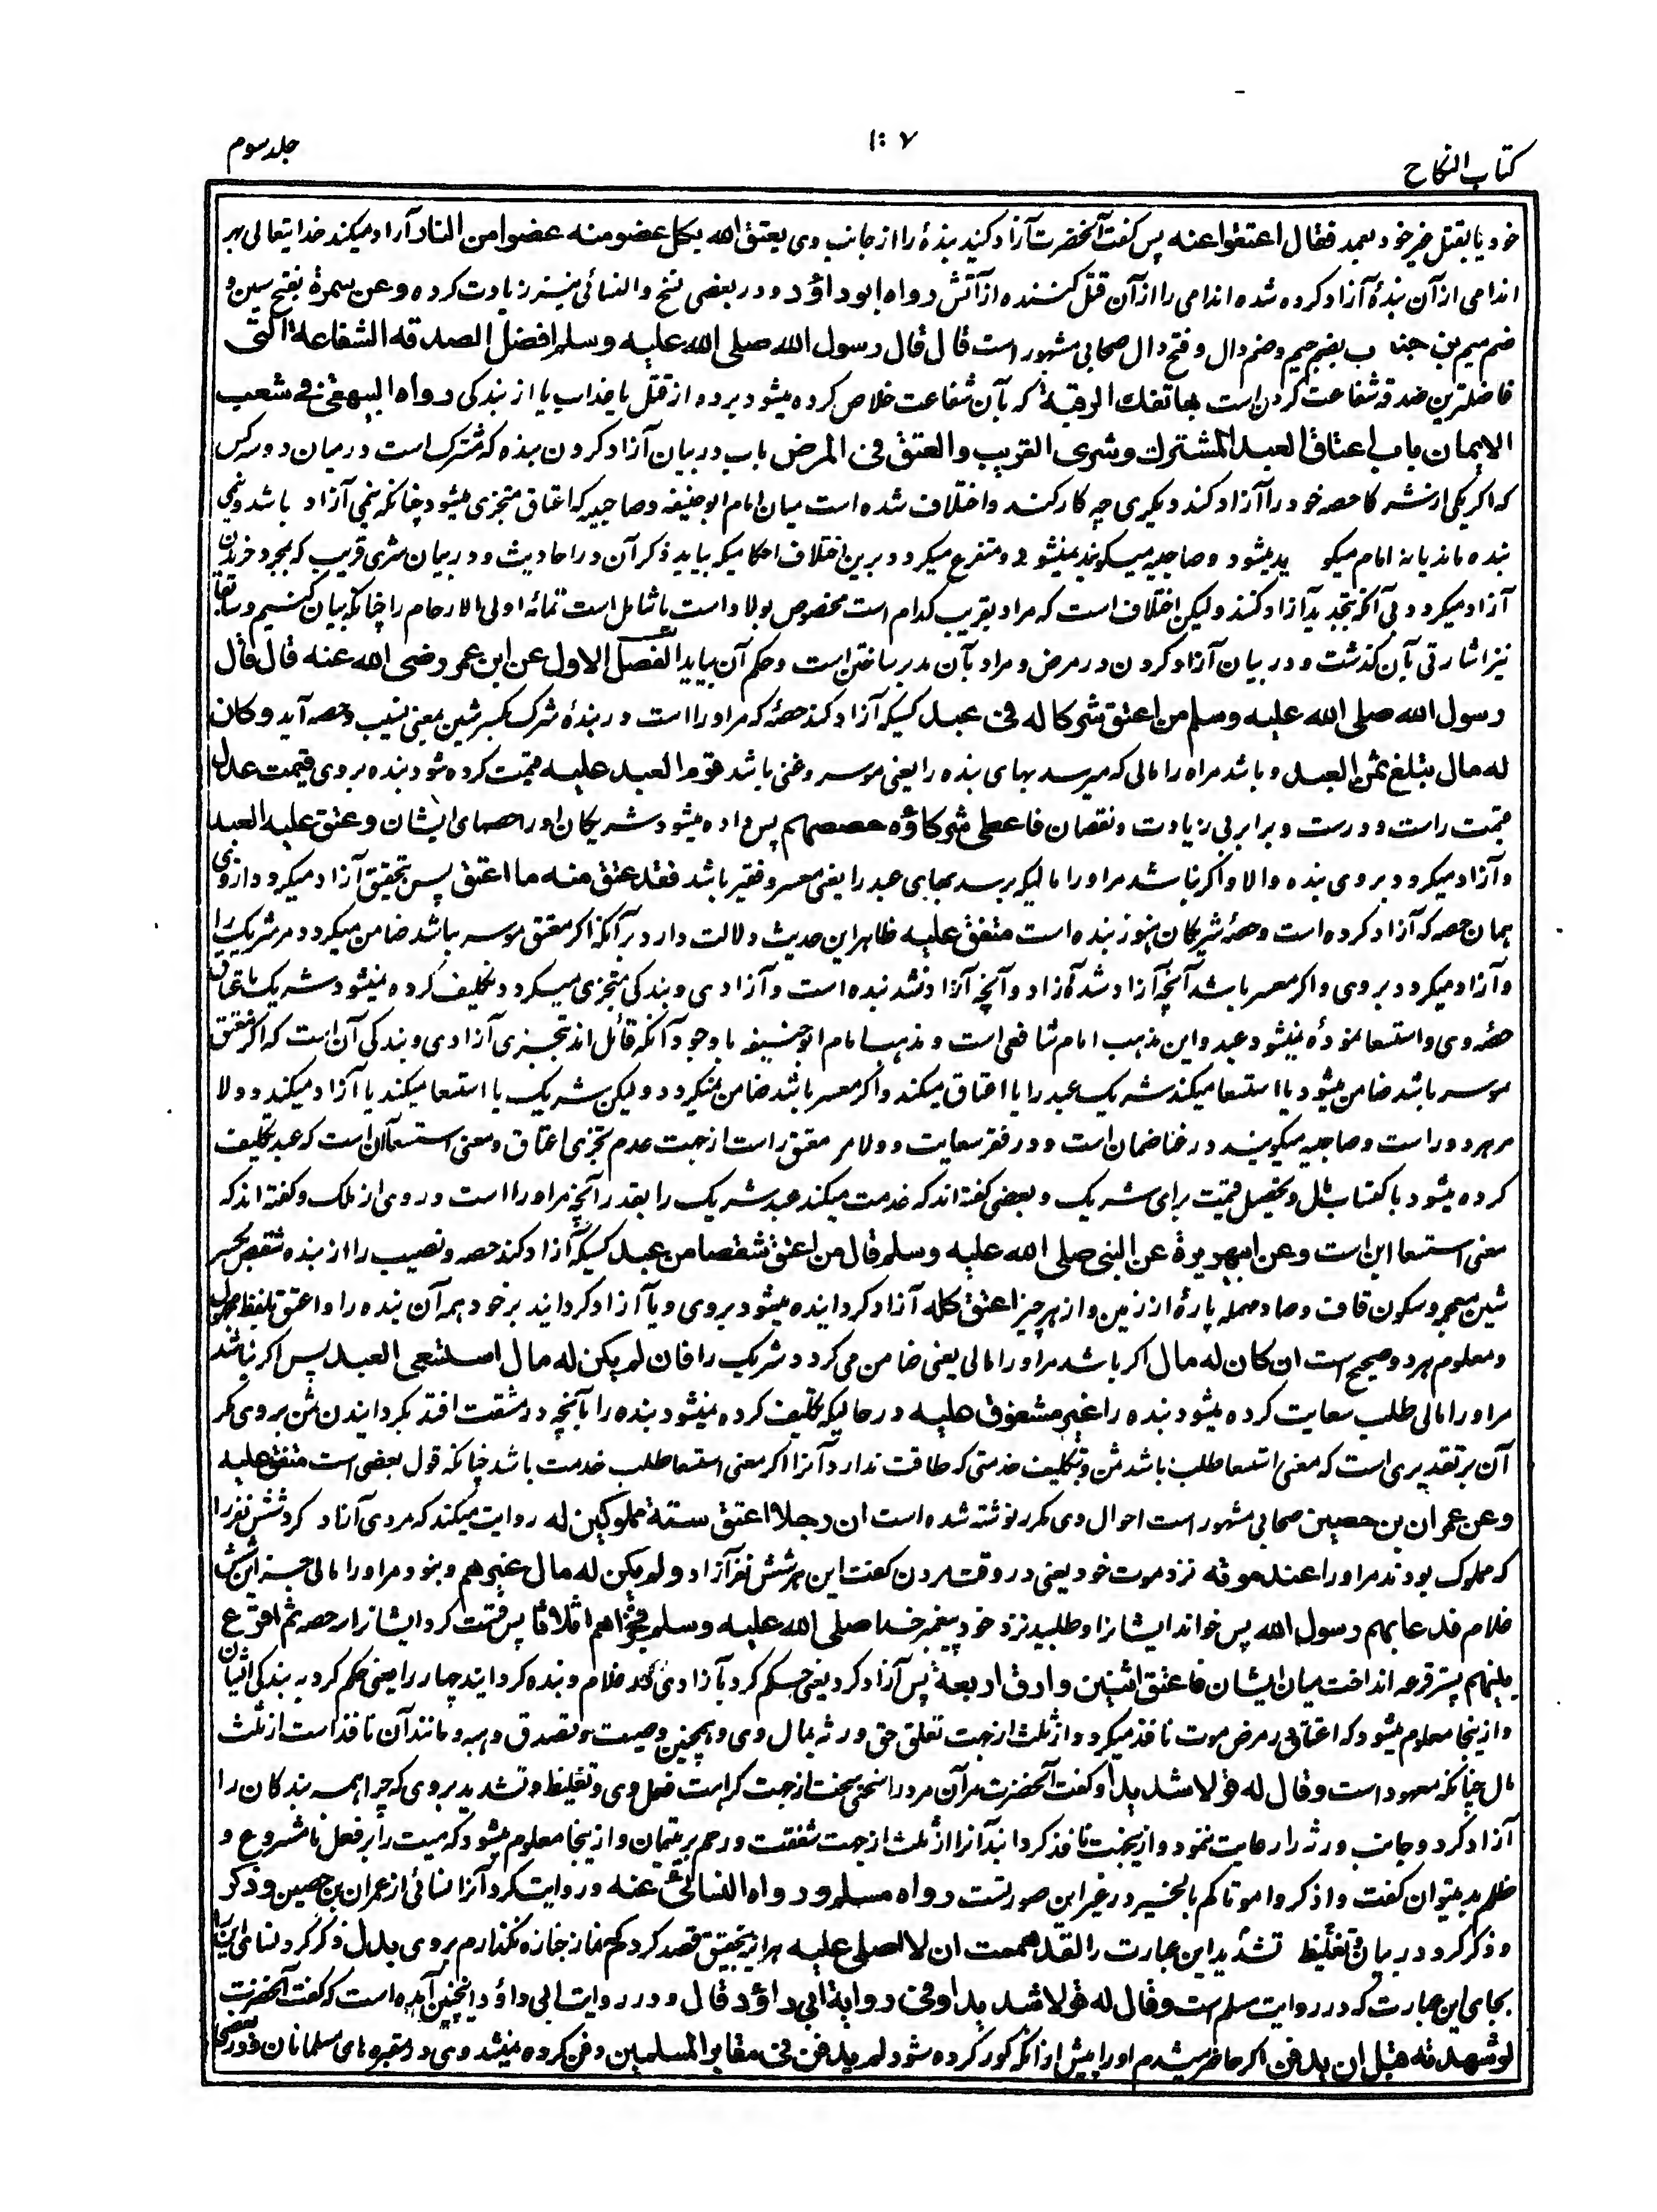 كتاب النكاح
۱۰۷
جلد سوم
خود یا بقتل غیر خود بعمد فقال اعتقوا عنه پس گفت آنحضرت آزاد کنید بندهٔ را از جانب وی یعتق الله بكل عضو منه عضوا من النار آزاد میکند خدایتعالی بهر
اندامی از آن بندهٔ آزاد کرده شده اندامی را از آن قتل کننده از آتش رواه ابو داؤد و در بعضی نسخ والنسائی نیز زیادت کرده وعن سمرة بفتح سین و
ضم میم بن جندب بضم جیم وضم دال و فتح دال صحابی مشهور است قال قال رسول الله صلى الله عليه وسلم افضل الصدقة الشفاعة التى
فاضلترین صدقه شفاعت کردن است بها تفك الرقبة که بآن شفاعت خلاص کرده میشود برده از قتل یا عذاب یا از بندگی رواه البيهقى فى شعب
الايمان باب اعتاق العبد المشترك وشرى القريب والعتق فى المرض باب در بیان آزاد کردن بنده که مشترک است در میان دو سه کس
که اگر یکی از شرکا حصه خود را آزاد کند دیگری چه کار کند و اختلاف شده است میان امام ابو حنیفه و صاحبیه که اعتاق متجزی میشود چنانکه نیمی آزاد باشد و نیمی
بنده ماند یا نه امام میگوید میشود و صاحبیه میگویند نمیشود و متفرع میگردد برین اختلاف احکامیکه بیاید ذکر آن در احادیث و در بیان شری قریب که بمجرد خریدن
آزاد میگردد بی آنکه بتجدید آزاد کنند ولیکن اختلاف است که مراد بقریب کدام است مخصوص بولاد است یا شامل است تمامه اولی الارحام را چنانکه بیان کنیم و سابقا
نیز اشارتی بآن گذشت و در بیان آزاد کردن در مرض و مراد بآن مدبر ساختن است و حکم آن بیاید الفصل الاول عن ابن عمر رضى الله عنه قال قال
رسول الله صلى الله عليه وسلم من اعتق شركا له فى عبد کسیکه آزاد کند حصهٔ که مر او را است در بندهٔ شرک بکسر شین بمعنی نصیب و حصه آید وكان
له مال يبلغ ثمن العبد و باشد مراه را مالی که میرسد بهای بنده را یعنی موسر و غنی باشد قوم العبد عليه قیمت کرده شود بنده بر وی قيمت عدل
قیمت راست و درست و برابر بی زیادت و نقصان فاعطى شركاؤه حصصهم پس داده میشود شریکان او را حصهای ایشان وعتق عليه العبد
و آزاد میگردد بر وی بنده والا و اگر نباشد مر او را مالیکه برسد ببهای عبد را یعنی معسر و فقیر باشد فقد عتق منه ما اعتق پس بتحقیق آزاد میگردد از وی
همان حصه که آزاد کرده است و حصهٔ شریکان هنوز بنده است متفق عليه ظاهر این حدیث دلالت دارد بر آنکه اگر معتق موسر باشد ضامن میگردد مر شریک را
و آزاد میگردد بر وی و اگر معسر باشد آنچه آزاد شد آزاد و آنچه آزاد نشد بنده است و آزادی و بندگی متجزی میگردد و تکلیف کرده نمیشود شریک باعتاق
حصهٔ وی و استسعا نموده نمیشود عبد و این مذهب امام شافعی است و مذهب امام ابو حنیفه با وجود آنکه قائل اند بتجزی آزادی و بندگی آن است که اگر معتق
موسر باشد ضامن میشود یا استسعا میکند شریک عبد را یا اعتاق میکند و اگر معسر باشد ضامن نمیگردد ولیکن شریک یا استسعا میکند یا آزاد میکند و ولا
مر هر دو را است و صاحبیه میگویند در غنا ضمان است و در فقر سعایت و ولا مر معتق راست از جهت عدم تجزی اعتاق و معنی استسعا آن است که عبد تکلیف
کرده میشود باکتساب مال و تحصیل قیمت برای شریک و بعضی گفته اند که خدمت میکند عبد شریک را بقدر آنچه مر او را است در وی از ملک و گفته اند که
معنی استسعا این است وعن ابى هريرة عن النبى صلى الله عليه وسلم قال من اعتق شقصا من عبد کسیکه آزاد کند حصه و نصیب را از بنده شقص بکسر
شین معجمه و سکون قاف و صاد مهمله پارهٔ از زمین و از هر چیز اعتق كله آزاد گردانیده میشود بر وی و یا آزاد گردانید بر خود همه آن بنده را و اعتق بلفظ مجهول
و معلوم هر دو صحیح است ان كان له مال اگر باشد مر او را مالی یعنی ضامن می گردد شریک را فان لم يكن له مال استسعى العبد پس اگر نباشد
مر او را مالی طلب سعایت کرده میشود بنده را غير مشقوق عليه در حالیکه تکلیف کرده نمیشود بنده را بآنچه در مشقت افتد بگردانیدن ثمن بر وی مگر
آن بر تقدیری است که معنی استسعا طلب باشد ثمن و تکلیف خدمتی که طاقت ندارد آنرا اگر معنی استسعا طلب خدمت باشد چنانکه قول بعضی است متفق عليه
وعن عمران بن حصين صحابی مشهور است احوال وی مکرر نوشته شده است ان رجلا اعتق ستة مملوكين له روایت میکند که مردی آزاد کرد شش نفر را
که مملوک بودند مر او را عند موته نزد موت خود یعنی در وقت مردن گفت این هر شش نفر آزاد ولم يكن له مال غيرهم و نبود مر او را مالی جز این شش
غلام فدعا بهم رسول الله پس خواند ایشانرا و طلبید نزد خود پیغمبر خدا صلى الله عليه وسلم فجزاهم اثلاثا پس قسمت کرد ایشانرا سه حصه ثم اقرع
بينهم پستر قرعه انداخت میان ایشان فاعتق اثنين وارق اربعة پس آزاد کرد یعنی حکم کرد بآزادی دو غلام و بنده گردانید چهار را یعنی حکم کرد به بندگی ایشان
و ازینجا معلوم میشود که اعتاق در مرض موت نافذ میگردد از ثلث از جهت تعلق حق ورثه بمال وی و همچنین وصیت و تصدق و هبه و مانند آن نافذ است از ثلث
مال چنانکه معهود است وقال له قولا شديدا و گفت آنحضرت مر آن مرد را سخنی سخت از جهت کراهت فعل وی و تغلیظ و تشدید بر وی که چرا همه بندگان را
آزاد کرد و جانب ورثه را رعایت ننمود و ازینجهت نافذ گردانید آنرا از ثلث از جهت شفقت و رحم بر یتیمان و ازینجا معلوم میشود که میت را بر فعل نامشروع و
ظلم بد میتوان گفت و اذکروا موتاکم بالخیر در غیر این صورتست رواه مسلم ورواه النسائى عنه و روایت کرد آنرا نسائی از عمران بن حصین وذكر
و ذکر کرد در بیان تغلیظ تشدید این عبارت را لقد هممت ان لا اصلى عليه هر آینه بتحقیق قصد کردم که نماز جنازه نگذارم بر وی بدل ذکر کرد نسائی این را
بجای این عبارت که در روایت مسلم است وقال له قولا شديدا وفى رواية ابى داؤد قال و در روایت ابی داؤد اینچنین آمده است که گفت آنحضرت
لو شهدته قبل ان يدفن اگر حاضر میشدم او را پیش از آنکه گور کرده شود لم يدفن فى مقابر المسلمين دفن کرده نمیشد وی در مقبره های مسلمانان و در بعضی